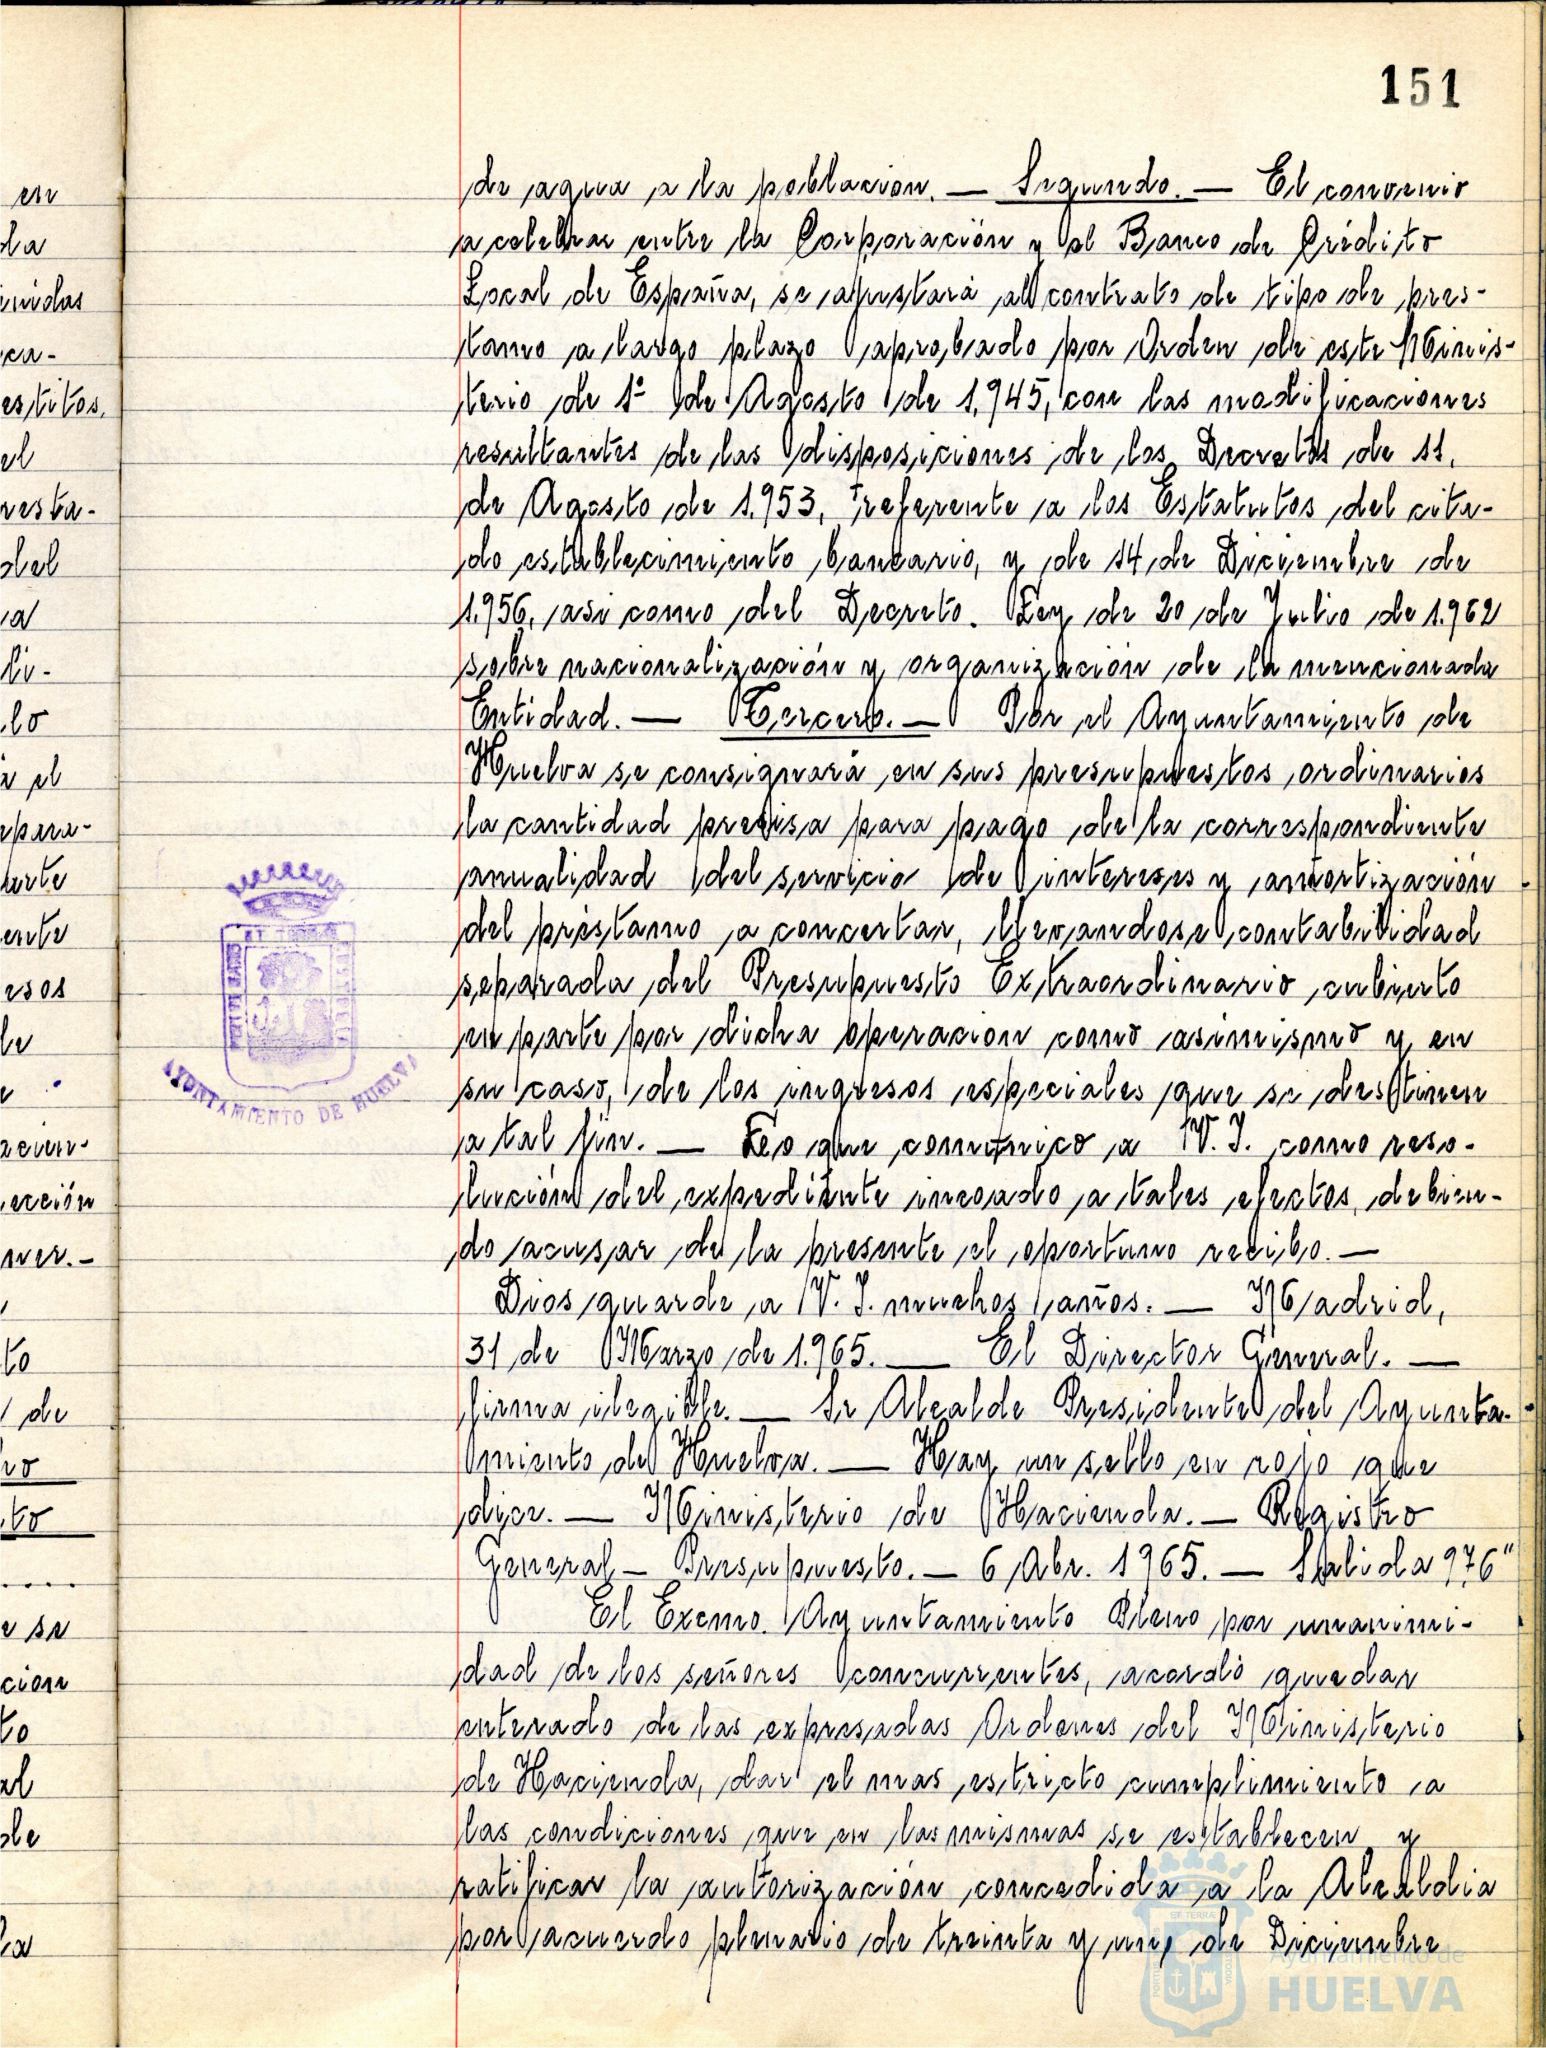 151
de agua a la poblacion. — Segundo. — El convenio
a celebrar entre la Corporación y el Banco de Crédito
Local de España, se ajustará al contrato de tipo de pres-
tamo a largo plazo aprobado por Orden de este Minis-
terio de 1º de Agosto de 1.945, con las modificaciones
resultantes de las disposiciones de los Decretos de 11.
de Agosto de 1.953, referente a los Estatutos del cita-
do establecimiento bancario, y de 14 de Diciembre de
1.956, asi como del Decreto. Ley de 20 de Julio de 1.962
sobre nacionalización y organización de la mencionada
Entidad. — Tercero. — Por el Ayuntamiento de
Huelva se consignará en sus presupuestos ordinarios
la cantidad precisa para pago de la correspondiente
anualidad del servicio de intereses y amortización
del préstamo a concertar, llevandose contabilidad
separada del Presupuesto Extraordinario cubierto
en parte por dicha operacion como asimismo y en
su caso, de los ingresos especiales que se destinen
a tal fin. — Lo que comunico a V. I. como reso-
lución del expediente incoado a tales efectos, debien-
do acusar de la presente el oportuno recibo. —
Dios guarde a V. I. muchos años. — Madrid,
31 de Marzo de 1.965. — El Director General. —
firma ilegible. — Sr Alcalde Presidente del Ayunta-
miento de Huelva. — Hay un sello en rojo que
dice. — Ministerio de Hacienda. — Registro
General — Presupuesto. — 6 Abr. 1965. — Salida 976"
El Excmo. Ayuntamiento Pleno por unanimi-
dad de los señores concurrentes, acordó quedar
enterado de las expresadas Ordenes del Ministerio
de Hacienda, dar el mas estricto cumplimiento a
las condiciones que en las mismas se establecen y
ratificar la autorización concedida a la Alcaldia
por acuerdo plenario de treinta y uno de Diciembre
AYUNTAMIENTO DE HUELVA
Ayuntamiento de
HUELVA
en
la
nidas
ca-
estitos,
el
resta-
del
lo
el
epara-
arte
ente
esos
ección
ver.-
to
de
to
....
se
cion
to
al
de
la